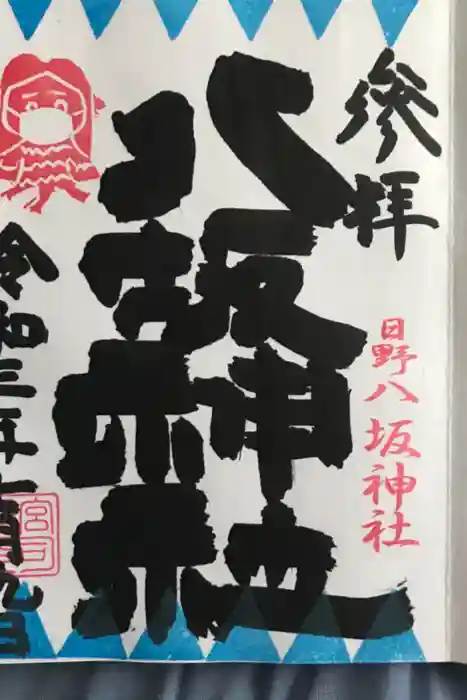 參拝
日野八坂神社
八坂神社
令和三年一月九日